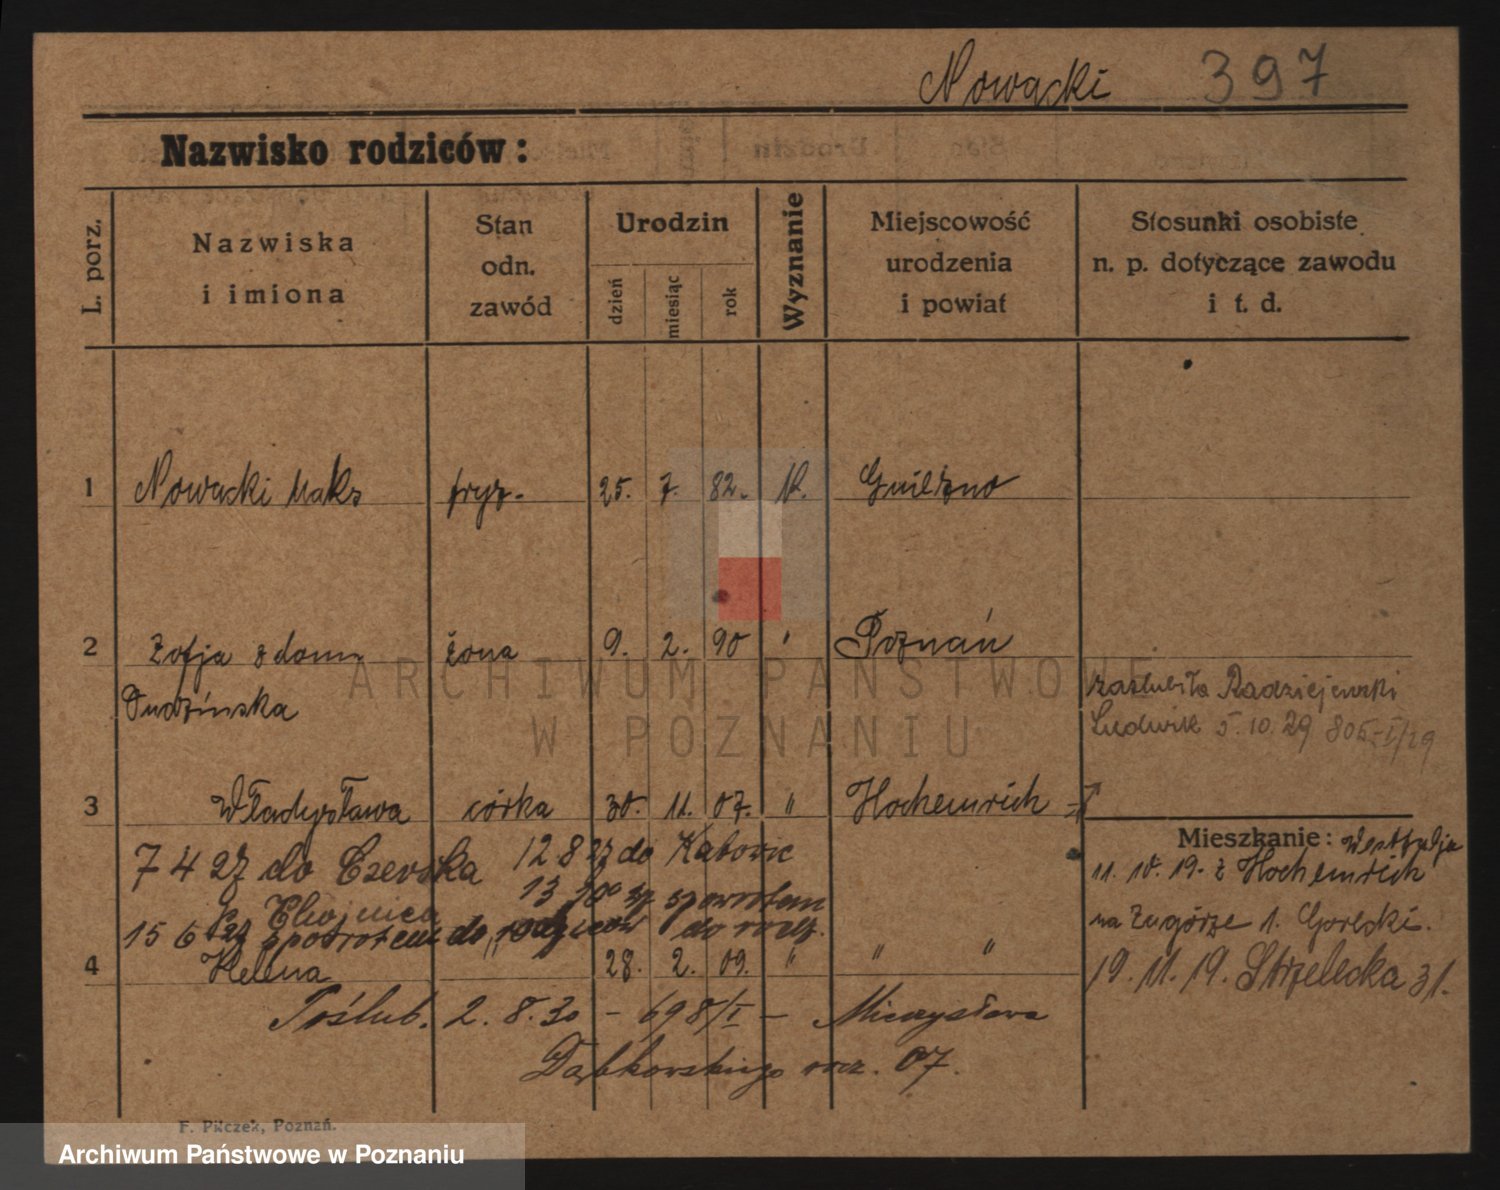 Nowacki 397
Nazwisko rodziców:
L. porz.
Nazwiska
i imiona
Stan
odn.
zawód
Urodzin
dzień
miesiąc
rok
Wyznanie
Miejscowość
urodzenia
i powiat
Stosunki osobiste
n. p. dotyczące zawodu
i t. d.
1 Nowacki Maks fryz. 25. 7. 82. Gniezno
2 Zofja z domu żona 9. 2. 90 " Poznań
zaślubiła Radziejewski
Ludwik 5.10.29 805-I/29
3 Władysława córka 30. 11. 07. " Hochemrich
Mieszkanie: Westfalja
7 4 27 do Czerska 12 8 27 do Katowic
11. 10. 19. z Hochemrich
13 spowrotem
na Zagórze 1. Gorecki.
15 6 27 spowrotem do rodziców do rodz.
4 Helena 28. 2. 09. " " "
19. 11. 19. Strzelecka 31.
Poślub. 2. 8. 30 - 698/I - Mieczysława
Dąbkowskiego 07.
F. Pilczek, Poznań.
ARCHIWUM PAŃSTWOWE
W POZNANIU
Archiwum Państwowe w Poznaniu